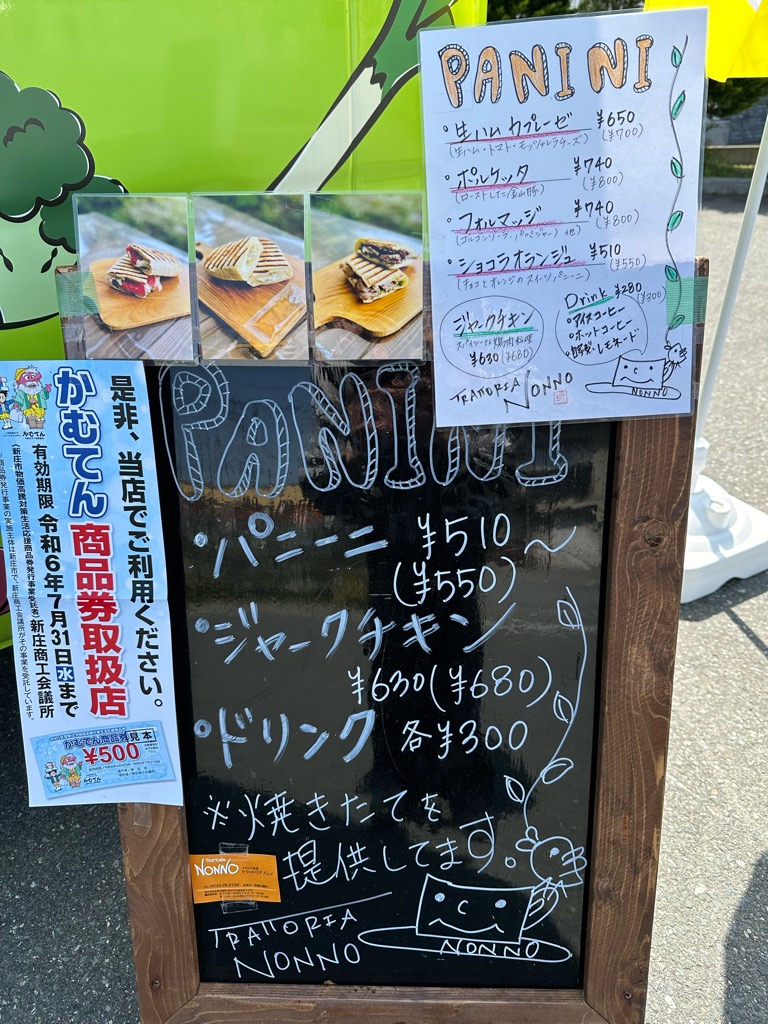 PANINI
・生ハム カプレーゼ ¥650
(生ハム・トマト・モッツァレラチーズ) (¥700)
・ポルケッタ ¥740
(ローストした金山豚) (¥800)
・フォルマッジ ¥740
(ゴルゴンゾーラ、パルミジャーノ他) (¥800)
・ショコラオランジュ ¥510
(チョコとオレンジのスイーツパニーニ) (¥550)
ジャークチキン
スパイシーな鶏肉料理
¥630 (¥680)
Drink ¥280
(¥300)
・アイスコーヒー
・ホットコーヒー
・自家製レモネード
TRATTORIA NONNO
NONNO
是非、当店でご利用ください。
かむてん
商品券取扱店
有効期限 令和6年7月31日水まで
(新庄市物価高騰対策生活応援商品券発行事業受託者)新庄商工会議所
※商品券発行事業の実施主体は新庄市で、新庄商工会議所がその事業を受託しています。
かむてん商品券見本
¥500
PANINI
・パニーニ ¥510〜
(¥550)
・ジャークチキン
¥630(¥680)
・ドリンク 各¥300
※焼きたてを
提供してます。
TRATTORIA
NONNO
トラットリア ノンノ
TRATTORIA
NONNO
NONNO